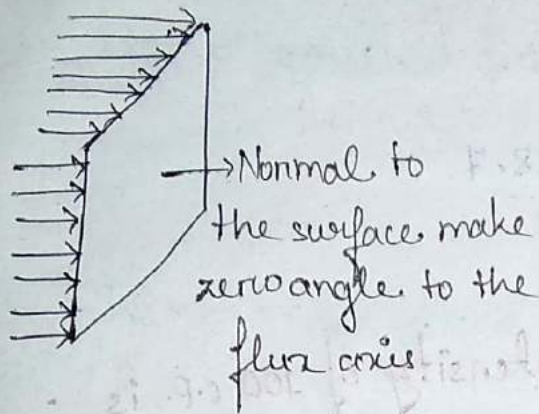 Normal to
the surface make
zero angle to the
flux axis